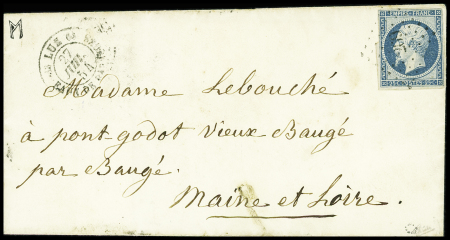 EMPIRE FRANC.
LUZ
Madame Lebouché
à pont godot Vieux Baugé
par Baugé.
Maine et Loire.